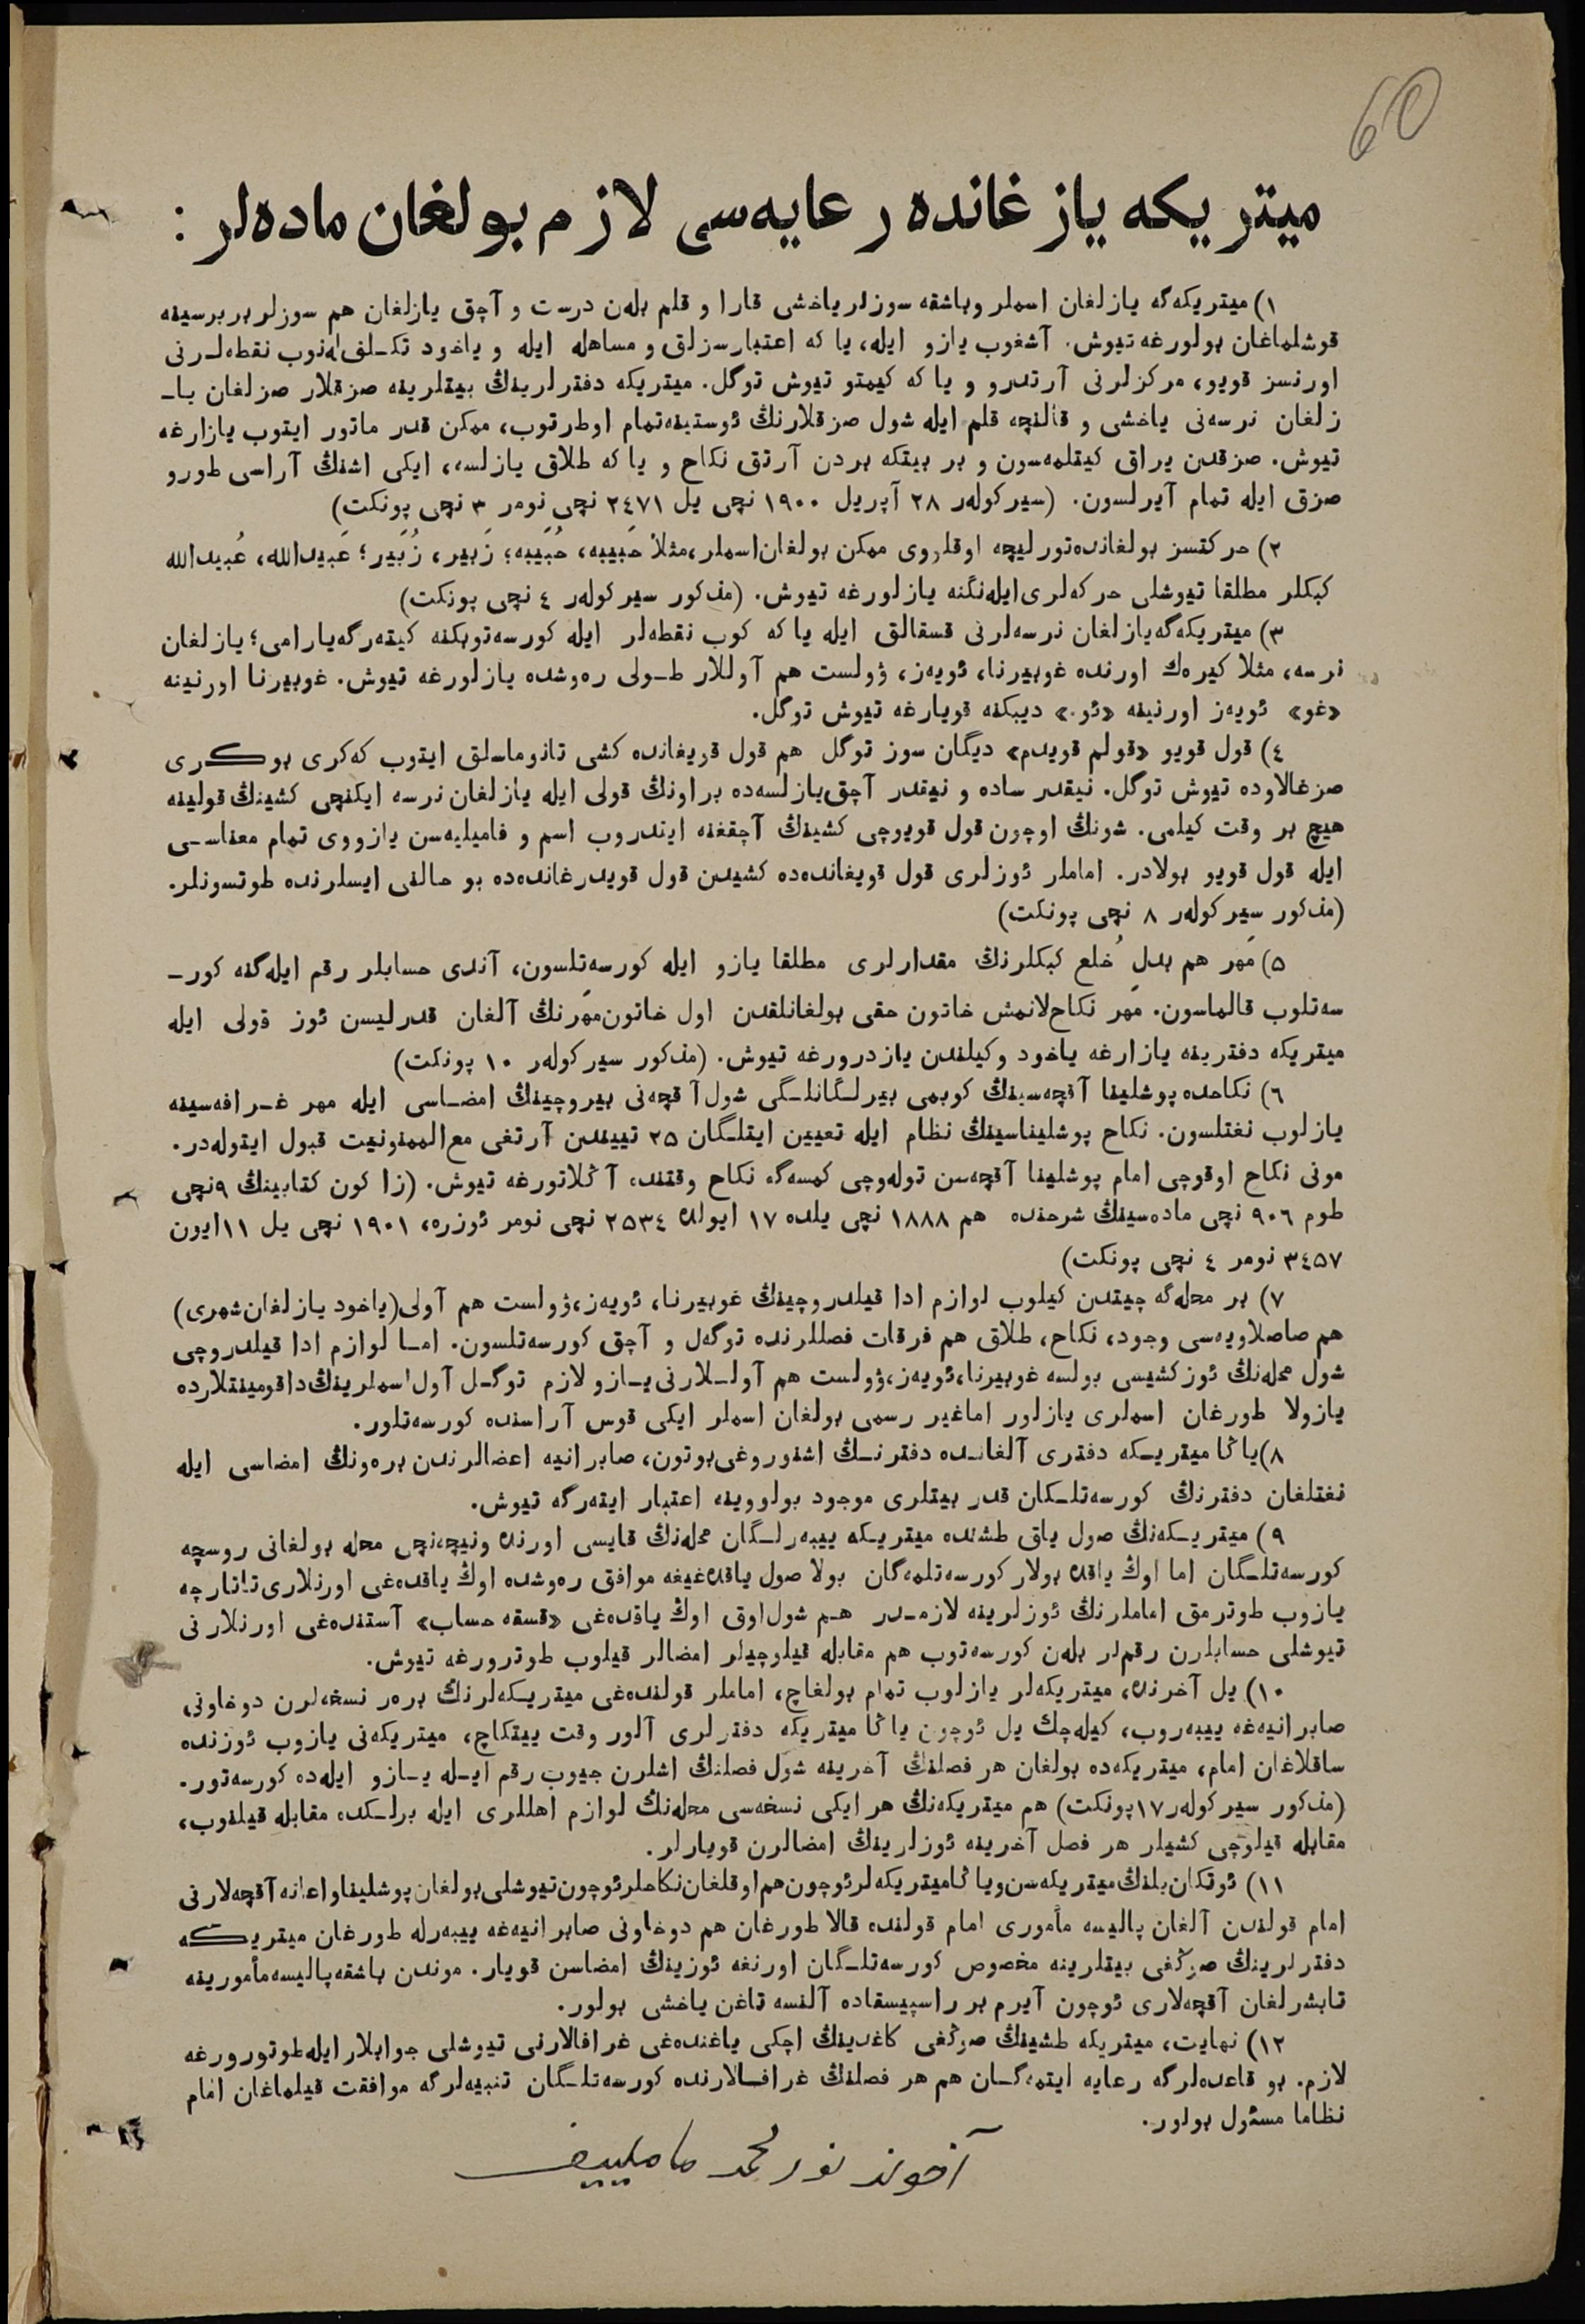 60
ميتريكه يازغانده رعايه‌سى لازم بولغان ماده‌لر :
١) ميتريكه‌گه يازلغان اسملر وباشقه سوزلر ياخشى قارا و قلم بله‌ن درست و آچق يازلغان هم سوزلر بربرسينه
قوشلماغان بولورغه تيوش. آشغوب يازو ايله، يا كه اعتبارسزلق و مساهله ايله و ياخود تكـلف‌له‌نوب نقطه‌لـرنى
اورنسز قويو، مركزلرنى آرتدرو و يا كه كيمتو تيوش توگل. ميتريكه دفترلرينڭ بيتلرينه صزقلار صزلغان يا‌ـ
زلغان نرسه‌نى ياخشى و قالنچه قلم ايله شول صزقلارنڭ ئوستينه‌تمام اوطرتوب، ممكن قدر ماتور ايتوب يازارغه
تيوش. صزقدن يراق كيتلمه‌سون و بر بيتكه بردن آرتق نكاح و يا كه طلاق يازلسه، ايكى اشنڭ آراسى طورو
صزق ايله تمام آيرلسون. (سيركوله‌ر ٢٨ آپريل ١٩٠٠ نچى يل ٢٤٧١ نچى نومر ٣ نچى پونكت)
٢) حركتسز بولغانده‌تورليچه اوقلووى ممكن بولغان‌اسملر،مثلا حَبيبه، حُبَيبه؛ زَبير، زُبَير؛ عَبيدالله، عُبيدالله
كبكلر مطلقا تيوشلى حركه‌لرى‌ايله‌نگنه يازلورغه تيوش. (مذكور سيركوله‌ر ٤ نچى پونكت)
٣) ميتريكه‌گه‌يازلغان نرسه‌لرنى قسقالق ايله يا كه كوب نقطه‌لر ايله كورسه‌توبكنه كيته‌رگه‌يارامى؛ يازلغان
نرسه، مثلا كيره‌ك اورنده غوبيرنا، ئويه‌ز، ۋولست هم آوللار طـولى ره‌وشده يازلورغه تيوش. غوبيرنا اورنينه
«غو» ئويه‌ز اورنينه «ئو.» ديبكنه قويارغه تيوش توگل.
٤) قول قويو «قولم قويدم» ديگان سوز توگل هم قول قويغانده كشى تانوماسلق ايتوب كه‌كرى بوكرى
صزغالاوده تيوش توگل. نيقدر ساده و نيقدر آچق‌يازلسه‌ده براونڭ قولى ايله يازلغان نرسه ايكنچى كشينڭ قولينه
هيچ بر وقت كيلمى. شونڭ اوچون قول قويوچى كشينڭ آچقغنه ايتدروب اسم و فاميليه‌سن يازووى تمام معناسـى
ايله قول قويو بولادر. اماملر ئوزلرى قول قويغانده‌ده كشيدن قول قويدرغانده‌ده بو حالنى ايسلرنده طوتسونلر.
(مذكور سيركوله‌ر ٨ نچى پونكت)
٥) مَهر هم بدلِ خُلع كبكلرنڭ مقدارلرى مطلقا يازو ايله كورسه‌تلسون، آندى حسابلر رقم ايله‌گنه كورـ
سه‌تلوب قالماسون. مَهر نكاح‌لانمش خاتون حقى بولغانلقدن اول خاتون‌مَهرنڭ آلغان قدرليسن ئوز قولى ايله
ميتريكه دفترينه يازارغه ياخود وكيلندن يازدرورغه تيوش. (مذكور سيركوله‌ر ١٠ پونكت)
٦) نكاحده پوشلينا آقچه‌سينڭ كوبمى بيرلـگانلـگى شول آقچه‌نى بيروچينڭ امضـاسى ايله مهر غـرافه‌سينه
يازلوب نغتلسون. نكاح پوشليناسينڭ نظام ايله تعيين ايتلـگان ٢٥ تييندن آرتغى مع‌الممنونيت قبول ايتوله‌در.
مونى نكاح اوقوچى امام پوشلينا آقچه‌سن توله‌وچى كمسه‌گه نكاح وقتنده آڭلاتورغه تيوش. (زاكون كتابينڭ ٩نچى
طوم ٩٠٦ نچى ماده‌سينڭ شرحنده هم ١٨٨٨ نچى يلده ١٧ ايولده ٢٥٣٤ نچى نومر ئوزره، ١٩٠١ نچى يل ١١ايون
٣٤٥٧ نومر ٤ نچى پونكت)
٧) بر محله‌گه چيتدن كيلوب لوازم ادا قيلدروچينڭ غوبيرنا، ئويه‌ز،ۋولست هم آولى(ياخود يازلغان‌شهرى)
هم صاصلاويه‌سى وجود، نكاح، طلاق هم فرقات فصللرنده توگه‌ل و آچق كورسه‌تلسون. امـا لوازم ادا قيلدروچى
شول محله‌نڭ ئوز كشيسى بولسه غوبيرنا،ئويه‌ز،ۋولست هم آولـلارنى‌يـازو لازم توگـل آول‌اسملرينڭ‌داقومينتلارده
يازولا طورغان اسملرى يازلور اماغير رسمى بولغان اسملر ايكى قوس آراسنده كورسه‌تلور.
٨)ياڭا ميتريـكه دفترى آلغانـده دفترنـڭ اشنوروغى‌بوتون، صابرانيه اعضالرندن بره‌ونڭ امضاسى ايله
نغتلغان دفترنڭ كورسه‌تلـكان قدر بيتلرى موجود بولووينه اعتبار ايته‌رگه تيوش.
٩) ميتريـكه‌نڭ صول ياق طشنده ميتريـكه ييبه‌رلـگان محله‌نڭ قايسى اورنده ونيچه‌نچى محله بولغانى روسچه
كورسه‌تلـگان اما اوڭ ياقده بولار كورسه‌تلمه‌گان بولا صول ياقده‌غيغه موافق ره‌وشده اوڭ ياقده‌غى اورنلارى‌تاتارچه
يازوب طوترمق اماملرنڭ ئوزلرينه لازمـدر هـم شول‌اوق اوڭ ياقده‌غى «قسقه حساب» آستنده‌غى اورنلارنى
تيوشلى حسابلرن رقم‌لر بله‌ن كورسه‌توب هم مقابله قيلوچيلر امضالر قيلوب طوترورغه تيوش.
١٠) يل آخرنده، ميتريكه‌لر يازلوب تمام بولغاچ، اماملر قولنده‌غى ميتريـكه‌لرنڭ بره‌ر نسخه‌لرن دوخاونى
صابرانيه‌غه ييبه‌روب، كيله‌چك يل ئوچون ياڭا ميتريكه دفترلرى آلور وقت ييتكاچ، ميتريكه‌نى يازوب ئوزنده
ساقلاغان امام، ميتريكه‌ده بولغان هر فصلنڭ آخرينه شول فصلنڭ اشلرن جيوب رقم ايـله يـازو ايله‌ده كورسه‌تور.
(مذكور سيركوله‌ر١٧پونكت) هم ميتريكه‌نڭ هر ايكى نسخه‌سى محله‌نڭ لوازم اهللرى ايله برلـكده مقابله قيلنوب،
مقابله قيلوچى كشيلر هر فصل آخرينه ئوزلرينڭ امضالرن قويارلر.
١١) ئوتكان‌يلنڭ‌ميتريكه‌سن‌وياڭاميتريكه‌لرئوچون‌هم‌اوقلغان‌نكاحلرئوچون‌تيوشلى‌بولغان‌پوشليناواعانه‌آقچه‌لارنى
امام قولندن آلغان پاليسه مأمورى امام قولنده قالا طورغان هم دوخاونى صابرانيه‌غه ييبه‌رله طورغان ميتريكه
دفترلرينڭ صوڭغى بيتلرينه مخصوص كورسه‌تلـگان اورنغه ئوزينڭ امضاسن قويار. موندن باشقه‌پاليسه‌مأمورينه
تابشرلغان آقچه‌لارى ئوچون آيرم بر راسپيسقاده آلنسه تاغن ياخشى بولور.
١٢) نهايت، ميتريكه طشينڭ صوڭغى كاغدينڭ اچكى ياغنده‌غى غرافالارنى تيوشلى جوابلار ايله‌طوتورورغه
لازم. بو قاعده‌لرگه رعايه ايتمه‌گـان هم هر فصلنڭ غرافـالارنده كورسه‌تلـگان تنبيه‌لرگه موافقت قيلماغان امام
نظاما مسئول بولور.
آخوند نورمحمد ماملييف